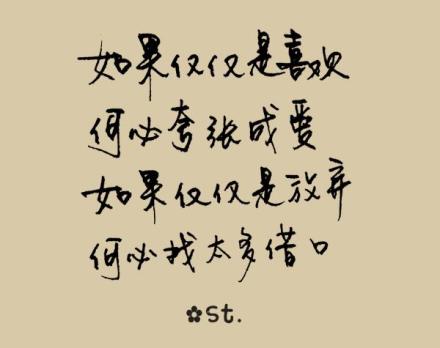 如果仅仅是喜欢
何必夸张成爱
如果仅仅是放弃
何必找太多借口
✿St.